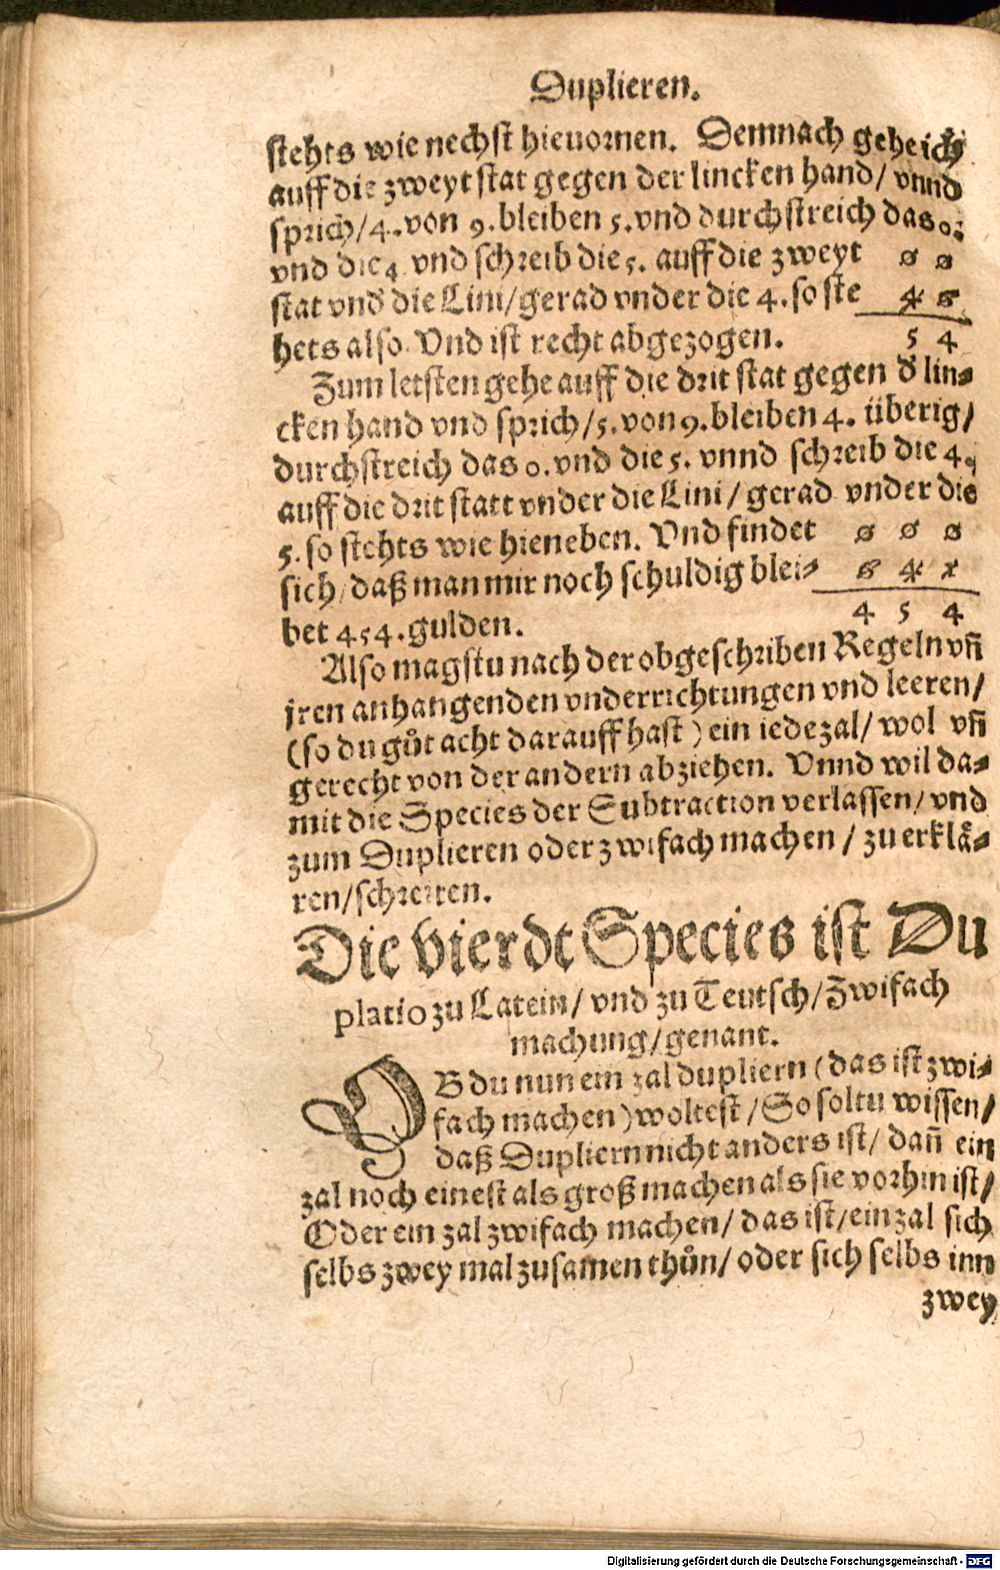 Duplieren.
stehts wie nechst hieuornen. Demnach gehe ich
auff die zweyt stat gegen der lincken hand/ vnnd
sprich/4. von 9. bleiben 5. vnd durchstreich das 0.
vnd die 4 vnd schreib die 5. auff die zweyt
0 0
stat vnd die Lini/gerad vnder die 4. so ste
4 6
hets also. Vnd ist recht abgezogen.
5 4
Zum letsten gehe auff die drit stat gegen d̕ lin⸗
cken hand vnd sprich/5. von 9. bleiben 4. überig/
durchstreich das 0. vnd die 5. vnnd schreib die 4.
auff die drit statt vnder die Lini/ gerad vnder die
5. so stehts wie hieneben. Vnd findet
0 0 0
sich/ daß man mir noch schuldig blei⸗
4
bet 454. gulden.
4 5 4
Also magstu nach der obgeschriben Regeln vñ
jren anhangenden vnderrichtungen vnd leeren/
(so du gůt acht darauff hast) ein iede zal/ wol vñ
gerecht von der andern abziehen. Vnnd wil da⸗
mit die Species der Subtraction verlassen/ vnd
zum Duplieren oder zwifach machen / zu erklä⸗
ren/schreiten.
Die vierdt Species ist Du
platio zu Latein/ vnd zu Teutsch/ Zwifach
machung/genant.
OB du nun ein zal dupliern (das ist zwi⸗
fach machen) woltest /So soltu wissen/
daß Dupliern nicht anders ist/ dañ ein
zal noch einest als groß machen als sie vorhin ist/
Oder ein zal zwifach machen/ das ist/ein zal sich
selbs zwey mal zusamen thůn/ oder sich selbs inn
zwey
Digitalisierung gefördert durch die Deutsche Forschungsgemeinschaft - DFG